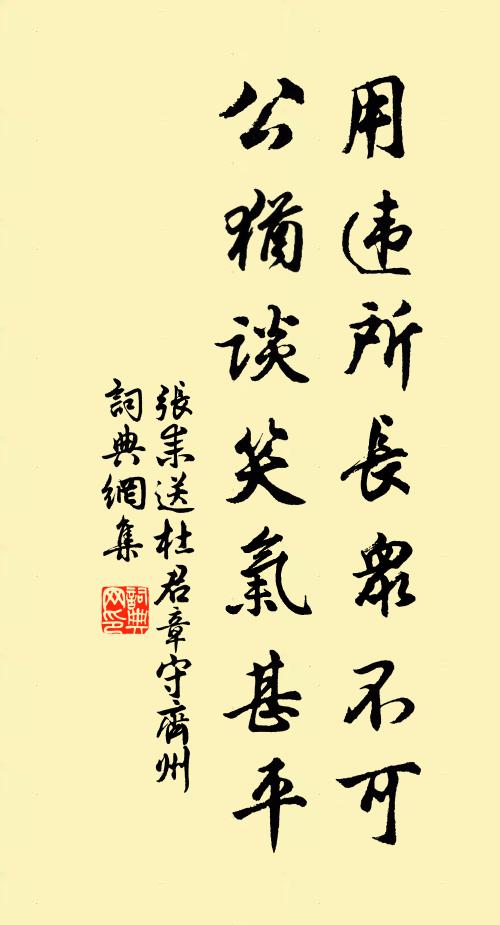 用违所長衆不可
公猶談笑氣甚平
張耒送杜君章守齊州
詞典網集
詞典网印